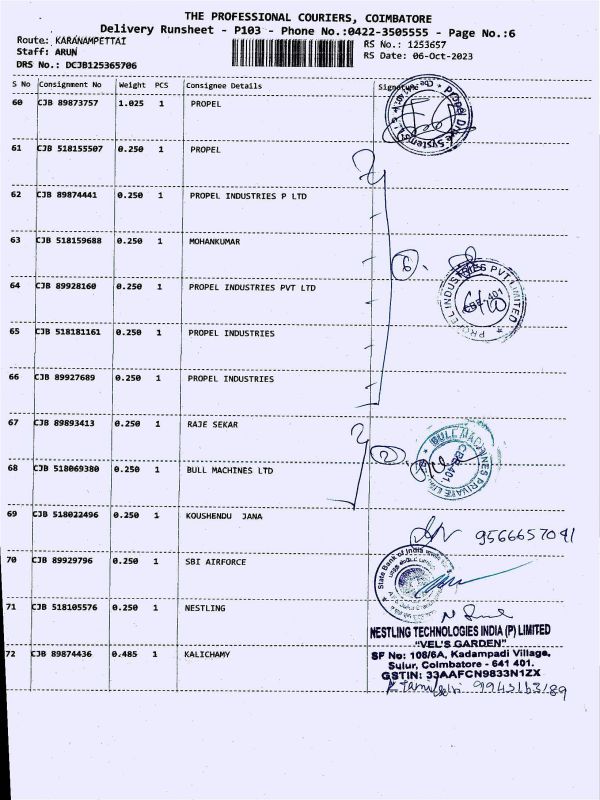 THE PROFESSIONAL COURIERS, COIMBATORE
Delivery Runsheet - P103 - Phone No.:0422-3505555 - Page No.:6
Route: KARANAMPETTAI RS No.: 1253657
Staff: ARUN RS Date: 06-Oct-2023
DRS No.: DCJB125365706
S No Consignment No Weight PCS Consignee Details Signature
60 CJB 89873757 1.025 1 PROPEL
61 CJB 518155507 0.250 1 PROPEL
62 CJB 89874441 0.250 1 PROPEL INDUSTRIES P LTD
63 CJB 518159688 0.250 1 MOHANKUMAR
64 CJB 89928160 0.250 1 PROPEL INDUSTRIES PVT LTD
PROPEL INDUSTRIES PVT LIMITED
CBE-401
65 CJB 518181161 0.250 1 PROPEL INDUSTRIES
66 CJB 89927689 0.250 1 PROPEL INDUSTRIES
67 CJB 89893413 0.250 1 RAJE SEKAR
BULL MACHINES PRIVATE LIMITED
CBE-401
68 CJB 518069380 0.250 1 BULL MACHINES LTD
69 CJB 518022496 0.250 1 KOUSHENDU JANA
9566657041
70 CJB 89929796 0.250 1 SBI AIRFORCE
State Bank of India
71 CJB 518105576 0.250 1 NESTLING
NESTLING TECHNOLOGIES INDIA (P) LIMITED
"VEL'S GARDEN"
SF No: 108/6A, Kadampadi Village,
Sulur, Coimbatore - 641 401.
GSTIN: 33AAFCN9833N1ZX
72 CJB 89874436 0.485 1 KALICHAMY
9943163189